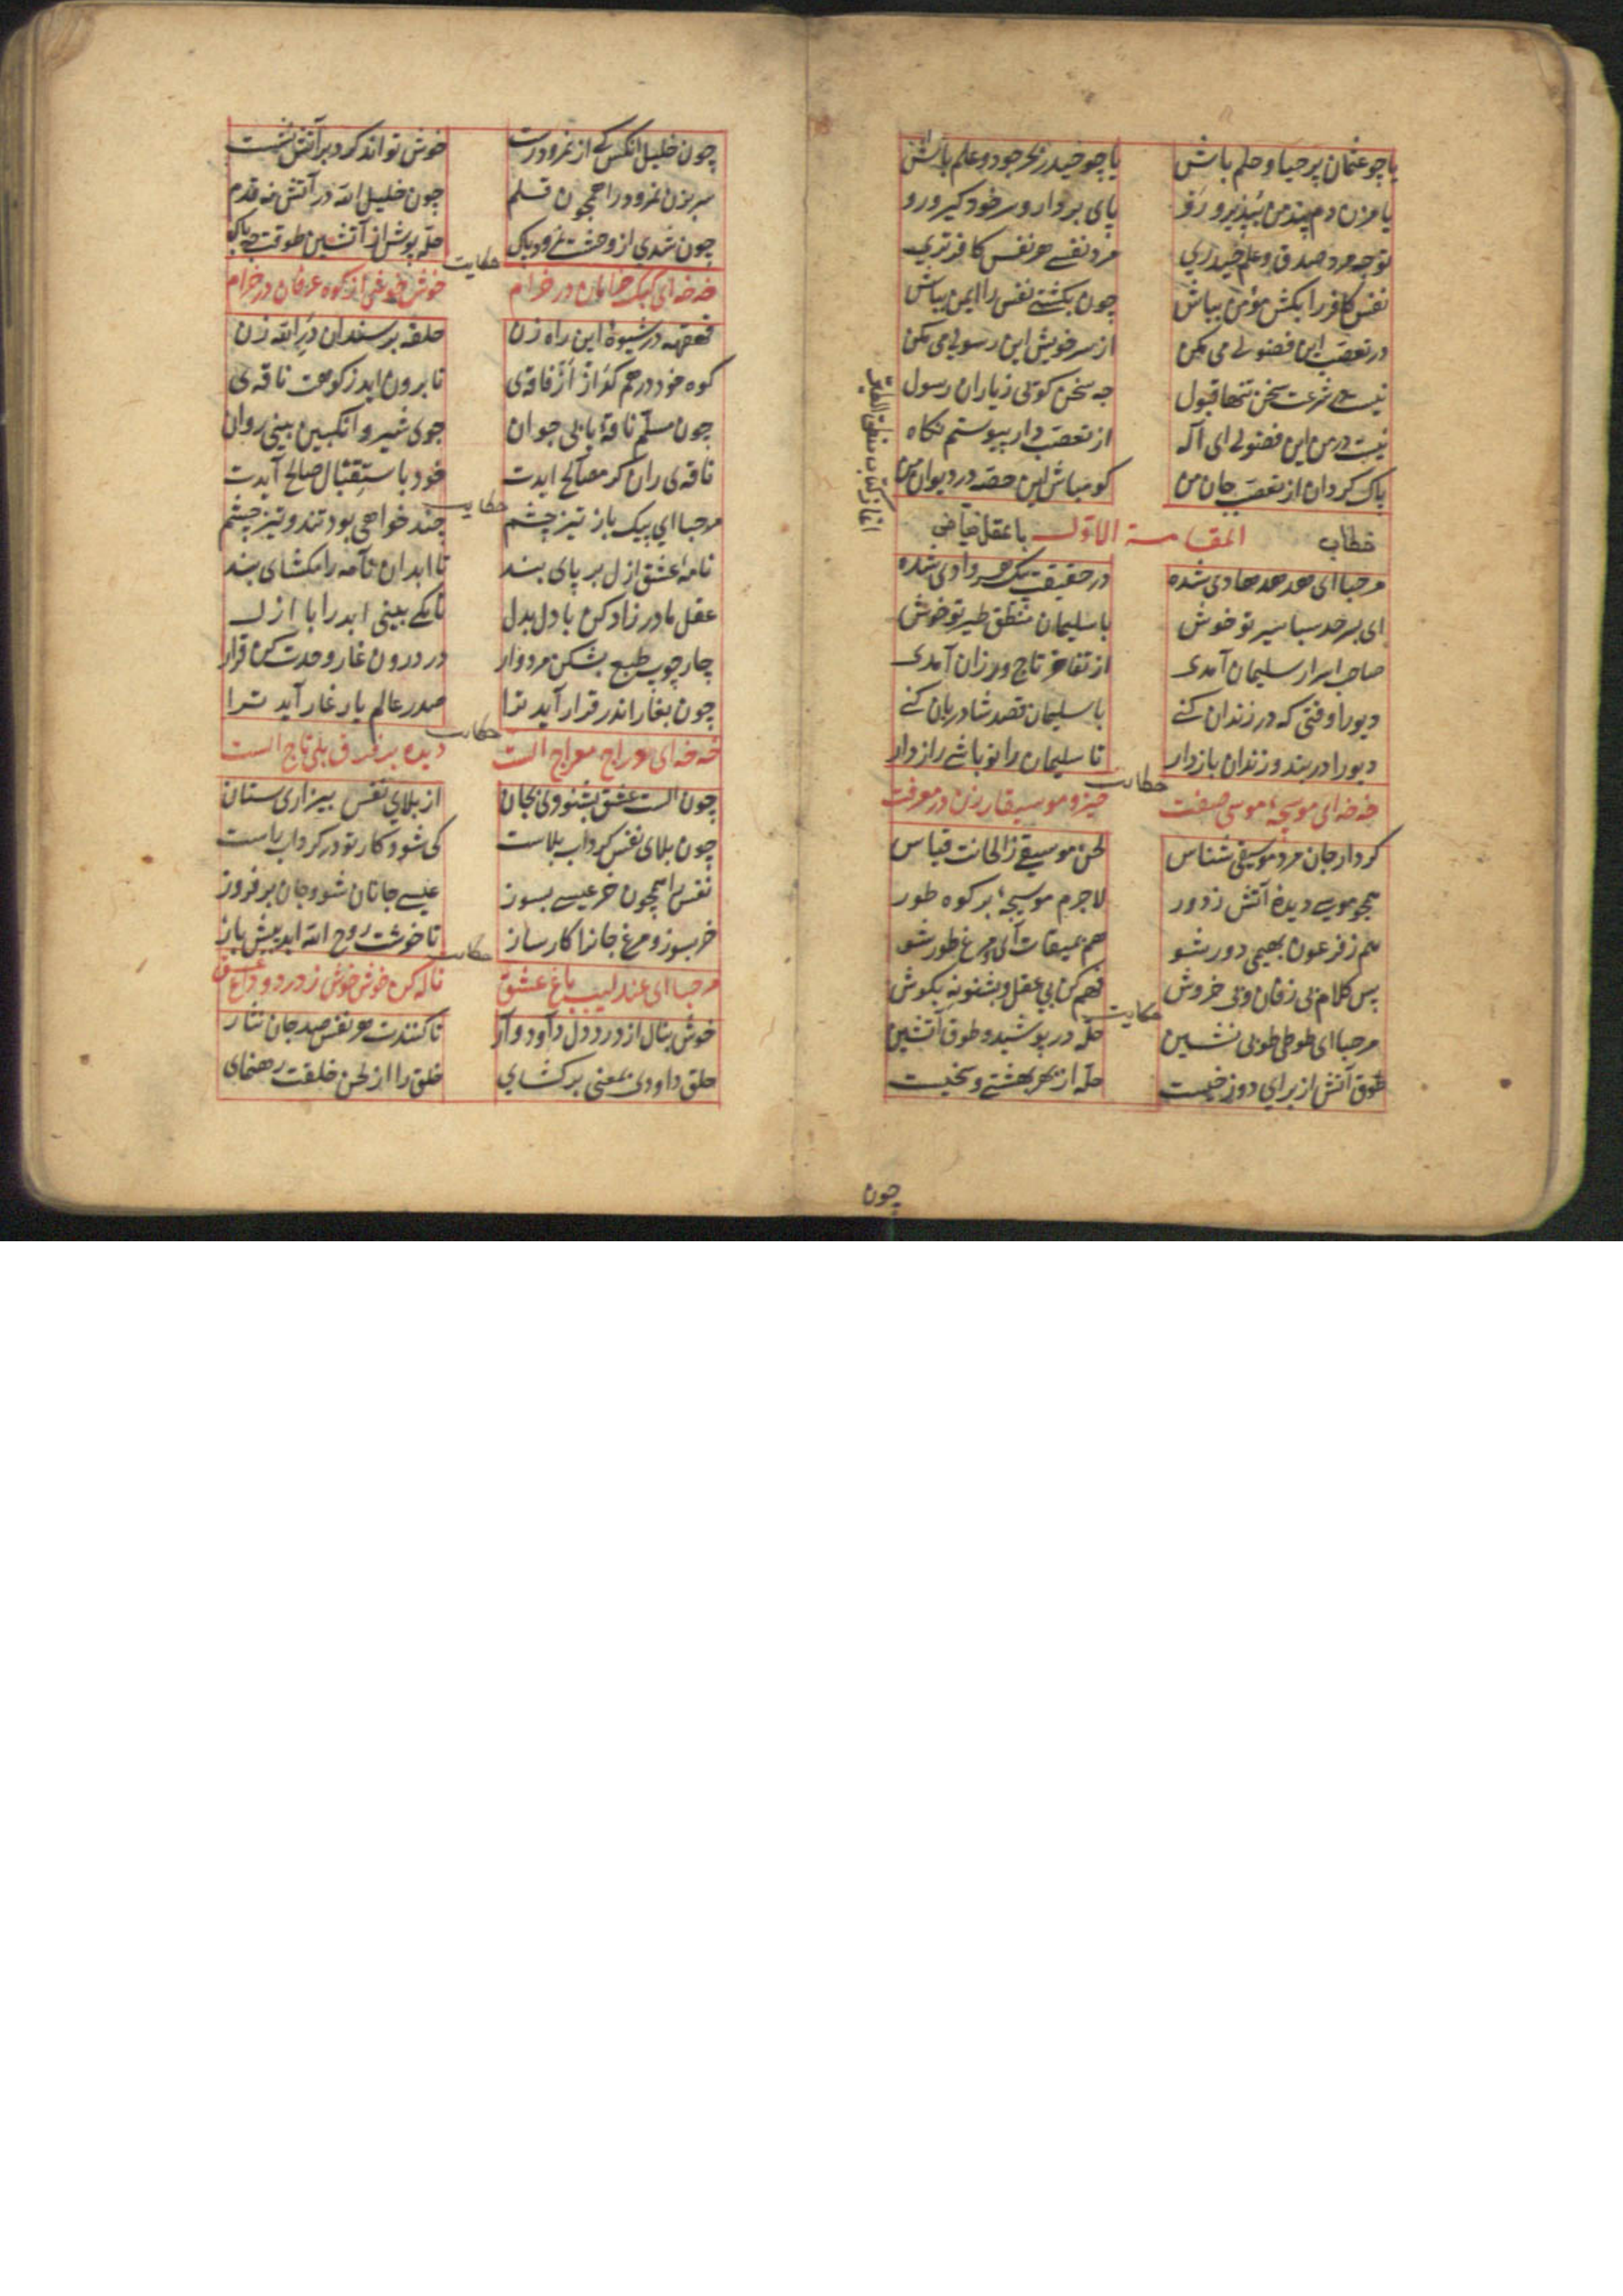 یا چو عثمان پر حیا و حلم باش یا چو حیدر بحر جود و علم باش
یا مزن دم پند من بپذیر و رو پای بردار و سر خود گیر و رو
تو چه مرد صدق و علم حیدری مرد نفسی هر نفس کافرتری
نفس کافر را بکش مؤمن بباش چون بکشتی نفس را ایمن بباش
در تعصب این فضولی می مکن از سر خویش این رسولی می مکن
نیست در شرعت سخن تنها قبول چه سخن کوئی زیاران رسول
نیست در من این فضولی ای اله از تعصب دار پیوستم نکاه
پاک کردان از تعصب جان من کو مباش این قصه در دیوان من
آغاز کتاب منطق الطیر
خطاب المقامة الاول با عقل فیاض
مرحبا ای هدهد هادی شده در حقیقت پیک هر وادی شده
ای بسرحد سبا سیر تو خوش با سلیمان منطق طیر تو خوش
صاحب اسرار سلیمان آمدی از تفاخر تاج ور زان آمدی
دیو را وقتی که در زندان کنی با سلیمان قصد شادروان کنی
دیو را در بند و زندان باز دار تا سلیمان را تو باشی رازدار
حکایت
خه خه ای موسیچهٔ موسی صفت خیز و موسیقار زن در معرفت
کرد از جان مرد موسیقی شناس لحن موسیقی ز الحانت قیاس
همچو موسی دیدهٔ آتش ز دور لاجرم موسیچهٔ بر کوه طور
هم ز فرعون بهیمی دور شو هم بمیقات آی و مرغ طور شو
پس کلام بی زفان و بی خروش فهم کن بی عقل و بشنو نه بکوش
حکایت
مرحبا ای طوطی طوبی نشین حله در پوشیده و طوق آتشین
طوق آتش از برای دوزخیست حله از بهر بهشتی و سخیست
چون
چون خلیل آنکس که از نمرود رست خوش تواند کرد بر آتش نشست
سر بزن نمرود را همچون قلم چون خلیل الله در آتش نه قدم
چون شدی از وحشت نمرود پاک حله پوش از آتشین طوقت چه باک
حکایت
خه خه ای کبک خرامان در خرام خوش خوشی از کوه عرفان در خرام
قهقهه در شیوهٔ این راه زن حلقه بر سندان در الله زن
کوه خود در هم گداز از فاقه‌ی تا برون اید ز کوهت ناقه‌ی
چون مسلم ناقهٔ یابی جوان جوی شیر و انکبین بینی روان
ناقه‌ی ران کر مصالح ایدت خود باستقبال صالح آیدت
حکایت
مرحبا ای پیک باز تیز چشم چند خواهی بود تند و تیز خشم
نامهٔ عشق ازل بر پای بند تا ابد ان نامه را مکشای بند
عقل مادرزاد کن با دل بدل تا یکی بینی ابد را با ازل
چارچوب طبع بشکن مردوار در درون غار وحدت کن قرار
چون بغار اندر قرار آید ترا صدر عالم یار غار آید ترا
حکایت
خه خه ای دراج معراج الست دیده بر فرق بلی تاج الست
چون الست عشق بشنودی بجان از بلای نفس بیزاری ستان
چون بلای نفس کرداب بلاست کی شود کار تو در کرداب راست
نفس را همچون خر عیسی بسوز عیسی جانان شو و جان بر فروز
خر بسوز و مرغ جانرا کار ساز تا خوشت روح الله اید پیش باز
حکایت
مرحبا ای عندلیب باغ عشق ناله کن خوش خوش ز درد و داغ عشق
خوش بنال از درد دل داود وار تا کنندت هر نفس صد جان نثار
حلق داودی بمعنی بر کشای خلق را از لحن خلقت رهنمای